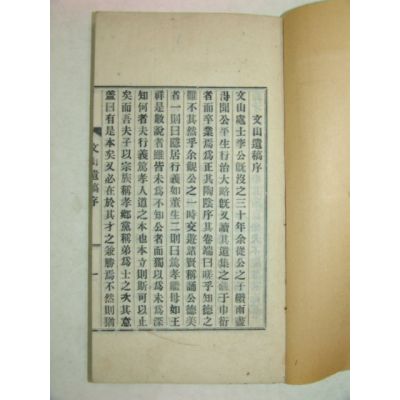 文山遺稿序
文山處士李公旣歿之三十年余從公之子纘南盡
得聞公平生行治大略旣又讀其遺集之藏于巾衍
者而卒業焉爲正其陶陰序其卷端曰嗟乎知德之
難不其然乎余觀公之一時交遊諸賢稱誦公德美
者一則曰隱居行義如董生二則曰篤孝繼母如王
祥是敢說者雖皆未爲不知公者而獨以爲未爲深
知何者夫行義篤孝人道之本也本立則斯可以止
矣而吾夫子以宗族稱孝鄕黨稱弟爲士之次其意
蓋曰有是本矣又必在於其才之兼勝焉不然則猶
文山遺稿序
一